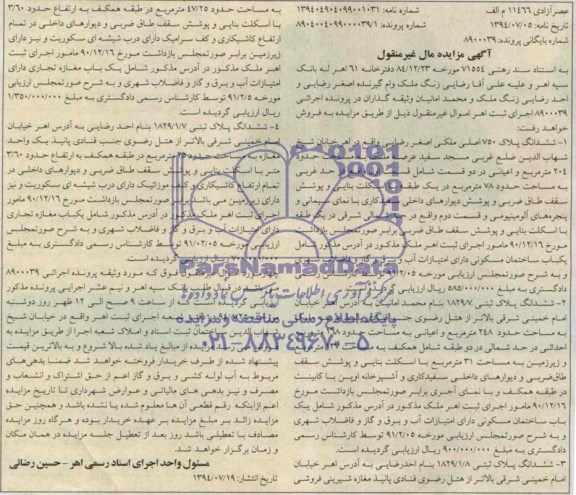 عصرآزادی ۱۱۴۶۶ م الف
شماره نامه: ۱۳۹۴۰۴۹۰۴۰۹۹۰۰۱۰۳۱
تاریخ نامه: ۱۳۹۴/۰۷/۰۵
شماره پرونده: ۸۹۰۴۰۰۴۰۹۹۰۰۰۰۳۹/۱
شماره بایگانی پرونده: ۸۹۰۰۰۳۹
آگهی مزایده مال غیرمنقول
به استناد سند رهنی ۷۱۵۵۴ مورخه ۸۴/۱۲/۲۳ دفترخانه ۶۱ اهر له بانک
سپه اهر و علیه علی آقا رضایی زنگ ملک وام گیرنده اصغر رضایی و
احد رضایی زنگ ملک و محمد امانیان وثیقه گذاران در پرونده اجرائی
۸۹۰۰۰۳۹ اجرای ثبت اهر اموال غیرمنقول ذیل از طریق مزایده به فروش
خواهد رفت:
۱- ششدانگ پلاک ۷۵۰ اصلی ملکی اصغر رضایی
شهاب الدین ضلع غربی مسجد سفید
۲۰۴ مترمربع و اعیانی در دو قسمت
حدود ۷۸ مترمربع در یک طبقه با اسکلت بنایی و پوشش
سقف طاق ضربی و پوشش دیوارهای داخلی
پنجره‌های آلومینیومی و قسمت دوم واقع در
با اسکلت بنایی و پوشش سقف طاق ضربی که برابر صورتمجلس بازداشت مورخ
۹۰/۱۲/۱۶ مامور اجرای ثبت اهر ملک مذکور در آدرس مذکور شامل
یکباب ساختمان مسکونی دارای امتیازات آب و برق و گاز
و به شرح صورتمجلس ارزیابی مورخه
دادگستری به مبلغ ۵۸۵/۰۰۰/۰۰۰ ریال ارزیابی گردیده است.
۲- ششدانگ پلاک ثبتی ۱۸۲۹/۷ بنام محمد امانیان
امام خمینی شرقی بالاتر از هتل رضوی جنب قنادی
به مساحت حدود ۲۴۸ مترمربع و اعیانی
احداثی در حد شمالی در دو طبقه شامل همکف
و زیرزمین به مساحت ۳۱ مترمربع با اسکلت بنایی و پوشش سقف
طاق‌ضربی و دیوارهای داخلی سفیدکاری و آشپزخانه اوپن با کابینت
در طبقه همکف و با نمای آجری برابر صورتمجلس بازداشت مورخ
۹۰/۱۲/۱۶ مامور اجرای ثبت اهر ملک مذکور در آدرس مذکور شامل یک
باب ساختمان مسکونی دارای امتیازات آب و برق و گاز و فاضلاب شهری
و به شرح صورتمجلس ارزیابی مورخه ۹۱/۲/۰۵ توسط کارشناس رسمی
دادگستری به مبلغ ۹۰۰/۰۰۰/۰۰۰ ریال ارزیابی گردیده است.
۳- ششدانگ پلاک ثبتی ۱۸۲۹/۱/۸ بنام احدرضایی به آدرس اهر خیابان
امام خمینی شرقی بالاتر از هتل رضوی جنب قنادی مغازه شیرینی فروشی
به مساحت حدود ۴۷/۲۵ مترمربع در طبقه همکف به ارتفاع حدود ۳/۶۰
با اسکلت بنایی و پوشش سقف طاق ضربی و دیوارهای داخلی در تمام
ارتفاع کاشیکاری و کف سرامیک دارای درب شیشه ای سکوریت و نیز دارای
زیرزمین برابر صورتمجلس بازداشت مورخ ۹۰/۱۲/۱۶ مامور اجرای ثبت
اهر ملک مذکور در آدرس مذکور شامل یک باب مغازه تجاری دارای
امتیازات آب و برق و گاز و فاضلاب شهری و به شرح صورتمجلس ارزیابی
مورخه ۹۱/۲/۵ توسط کارشناس رسمی دادگستری به مبلغ ۱/۳۵۰/۰۰۰/۰۰۰
ریال ارزیابی گردیده است.
۴- ششدانگ پلاک ثبتی ۱۸۲۹/۱/۷ بنام احد رضایی به آدرس اهر خیابان
امام خمینی شرقی بالاتر از هتل رضوی جنب قنادی پانیذ یک واحد
مترمربع در طبقه همکف به ارتفاع حدود ۳/۶۰
متر با اسکلت بنایی و پوشش سقف طاق ضربی و دیوارهای داخلی در
تمام ارتفاع کاشیکاری و کف موزائیک دارای درب شیشه ای سکوریت و نیز
دارای زیرزمین می باشد صورتمجلس بازداشت مورخ ۹۰/۱۲/۱۶ مامور
ثبت اهر ملک مذکور در آدرس مذکور شامل یکباب مغازه تجاری
دارای امتیازات آب و برق و گاز و فاضلاب شهری و به شرح صورتمجلس
ارزیابی مورخه ۹۱/۰۲/۰۵ توسط کارشناس رسمی دادگستری به مبلغ
ریال ارزیابی گردیده است.
فوق که مورد وثیقه پرونده اجرائی ۸۹۰۰۰۳۹
در قبال طلب بانک سپه اهر و نیم عشر اجرایی پرونده مذکور
از ساعت ۹ صبح الی ۱۲ ظهر روز دوشنبه
اجرای ثبت اهر واقع در خیابان شیخ
شهاب الدین ساختمان ثبت اسناد و املاک شعبه اجرا از طریق مزایده به
مزایده از مبالغ یاد شده بالا شروع و به بالاترین قیمت
پیشنهاد شده از طرف خریدار فروخته خواهد شد ضمنا بدهی‌های
مربوط به آب لوله کشی و برق و گاز اعم از حق اشتراک و انشعاب و
مصرف و نیز بدهی های مالیاتی و عوارض شهرداری تا تاریخ مزایده
اعم ازاینکه رقم قطعی آن ها معلوم شده یا نشده باشد و همچنین حق
مزایده زائد بر مبلغ مزایده بر عهده خریدار بوده و هرگاه روز مزایده
مصادف با تعطیلی باشد روز بعد از تعطیل جلسه مزایده در همان مکان
و زمان برگزار خواهد شد.
مسئول واحد اجرای اسناد رسمی اهر – حسین رضائی
تاریخ انتشار: ۱۳۹۴/۰۷/۱۹
ParsNamadData
مرکز فرآوری اطلاعات پارس نماد داده ها
پایگاه اطلاع رسانی مناقصه و مزایده
۰۲۱-۸۸۳۴۹۶۷۰-۵